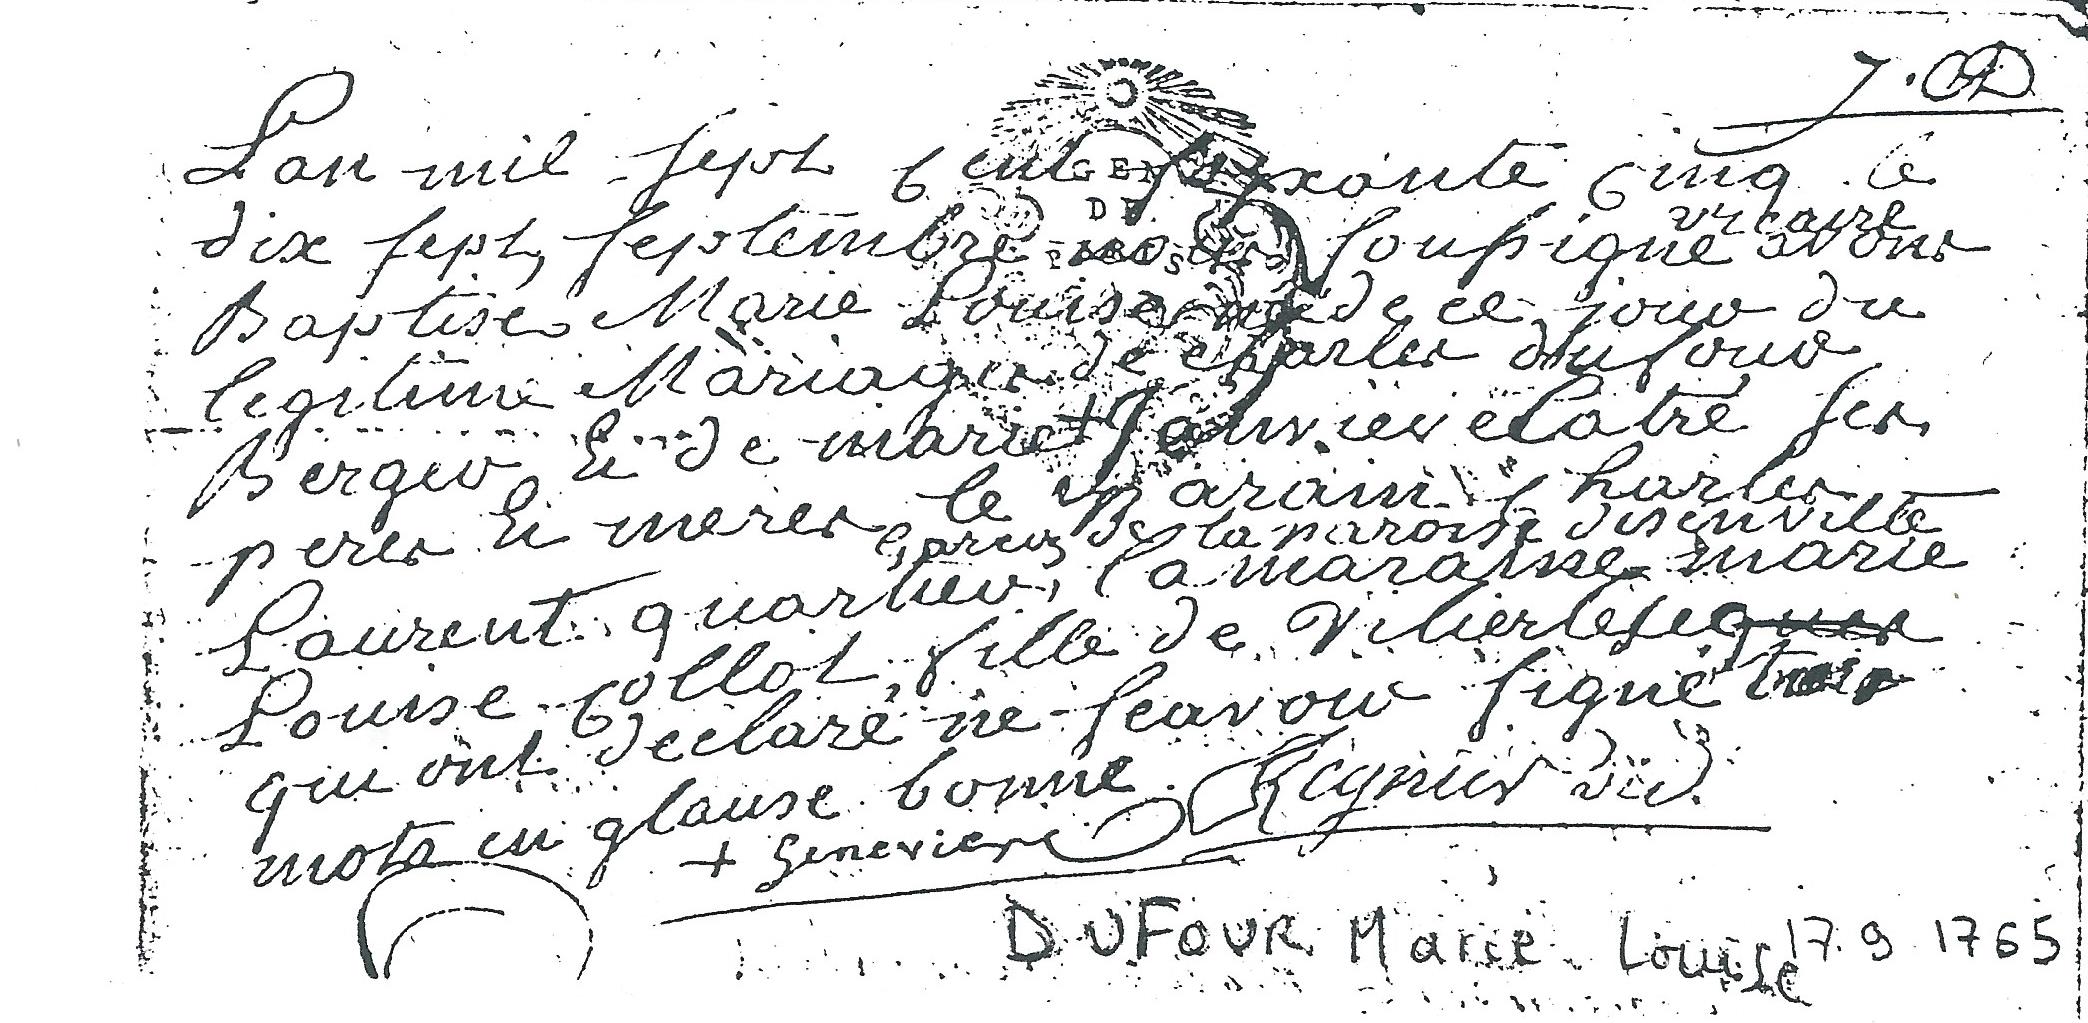 J. OD
L'an mil sept Cent soixante Cinq le
dix sept septembre nous soussigné vicaire avons
Baptisé Marie Louise née de ce jour du
legitime Mariage de charles dufour
Berger Et de marie + Janvieve Catré ses
peres Et meres, le Parain Charles
garcon de la paroisse disenville
Laurent quartier, La maraine marie
Louise Collot fille de Vilierlesec
qui ont declaré ne scavoir signé trois
mots en glause bonne. Regnier vic.
+ Genevieve
DUFOUR Marie Louise 17.9 1765